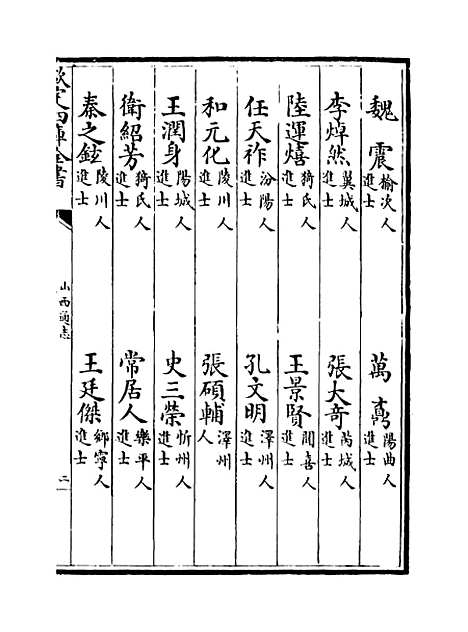 魏震榆次人進士　萬㠖陽曲人進士
李焯然翼城人進士　張大奇芮城人進士
陸運熺猗氏人進士　王景賢聞喜人進士
任天祚汾陽人進士　孔文明澤州人進士
和元化陵川人進士　張碩輔澤州人
王潤身陽城人進士　史三榮忻州人進士
衛紹芳猗氏人進士　常居人樂平人進士
秦之鉉陵川人進士　王廷傑鄉寧人進士
欽定四庫全書　山西通志　二